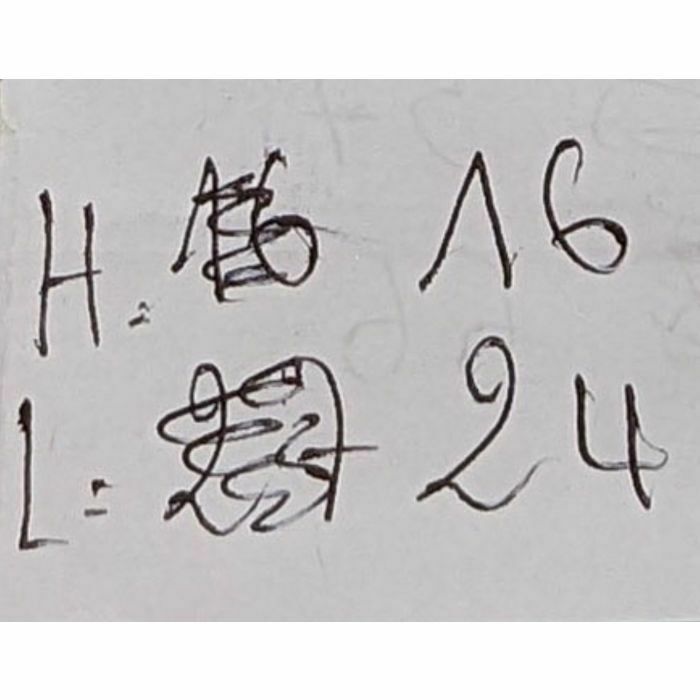 H: 16
L: 24